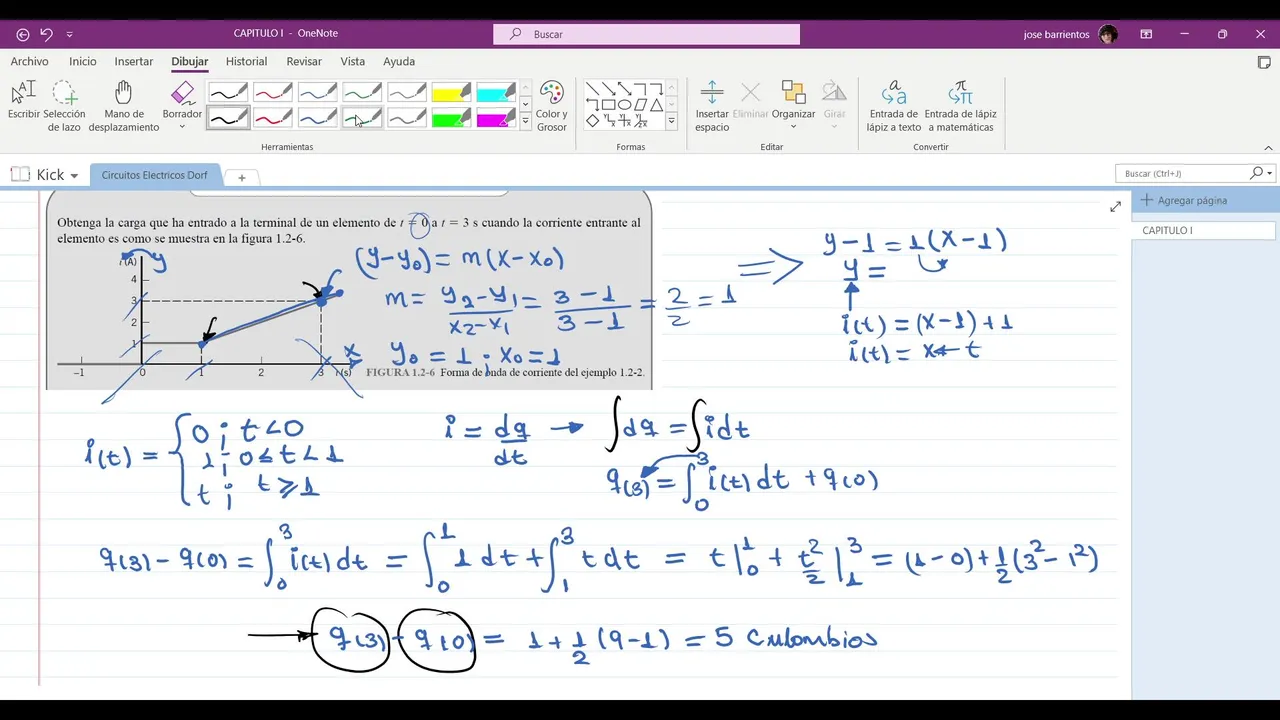 CAPITULO I - OneNote
Buscar
jose barrientos
Archivo Inicio Insertar Dibujar Historial Revisar Vista Ayuda
Escribir Selección de lazo Mano de desplazamiento Borrador Color y Grosor Insertar espacio Eliminar Organizar Girar Entrada de lápiz a texto Entrada de lápiz a matemáticas
Herramientas Formas Editar Convertir
Kick Circuitos Electricos Dorf +
Buscar (Ctrl+J)
Agregar página
CAPITULO I
Obtenga la carga que ha entrado a la terminal de un elemento de t = 0 a t = 3 s cuando la corriente entrante al
elemento es como se muestra en la figura 1.2-6.
i (A) y
4
3
2
1
-1 0 1 2 3 t (s)
x
(y-y0) = m(x-x0)
m = (y2-y1)/(x2-x1) = (3-1)/(3-1) = 2/2 = 1
y0 = 1 ; x0 = 1
FIGURA 1.2-6 Forma de onda de corriente del ejemplo 1.2-2.
⇒ y-1 = 1(x-1)
y =
i(t) = (x-1)+1
i(t) = x ← t
i(t) = { 0 ; t<0
1 ; 0≤t<1
t ; t≥1
i = dq/dt → ∫dq = ∫idt
q(3) = ∫₀³ i(t) dt + q(0)
q(3) - q(0) = ∫₀³ i(t) dt = ∫₀¹ 1 dt + ∫₁³ t dt = t|₀¹ + t²/2|₁³ = (1-0)+1/2(3²-1²)
→ q(3) - q(0) = 1+1/2(9-1) = 5 Culombios